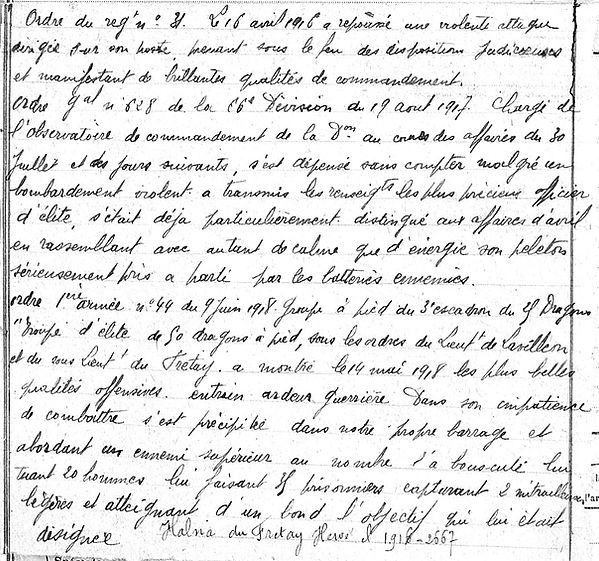 Ordre du regt n° 31. Le 16 avril 1916 a repoussé une violente attaque
dirigée sur son poste prenant sous le feu des dispositions judicieuses
et manifestant de brillantes qualités de commandement.
Ordre Gal n° 628 de la 66e Division du 19 août 1917. Chargé de
l'observatoire de commandement de la Don au cours des affaires du 30
juillet et des jours suivants, s'est dépensé sans compter malgré un
bombardement violent a transmis les renseigts les plus précieux officier
d'élite, s'était déjà particulièrement distingué aux affaires d'avril
en rassemblant avec autant de calme que d'énergie son peloton
sérieusement pris a parti par les batteries ennemies.
Ordre 1ère armée n° 44 du 9 juin 1918. Groupe à pied du 3e escadron du Dragons
"Troupe d'élite de 50 dragons à pied, sous les ordres du Lieut de Lavilléon
et du sous Lieut du Fretay. a montré le 14 mai 1918 les plus belles
qualités offensives. entrain ardeur guerrière Dans son impatience
de combattre s'est précipité dans notre propre barrage et
abordant un ennemi supérieur au nombre l'a bousculé lui
tuant 20 hommes lui faisant 35 prisonniers capturant 2 mitrailleuses
légères et atteignant d'un bond l'objectif qui lui était
désigné Halna du Fretay Hervé 1916-2667